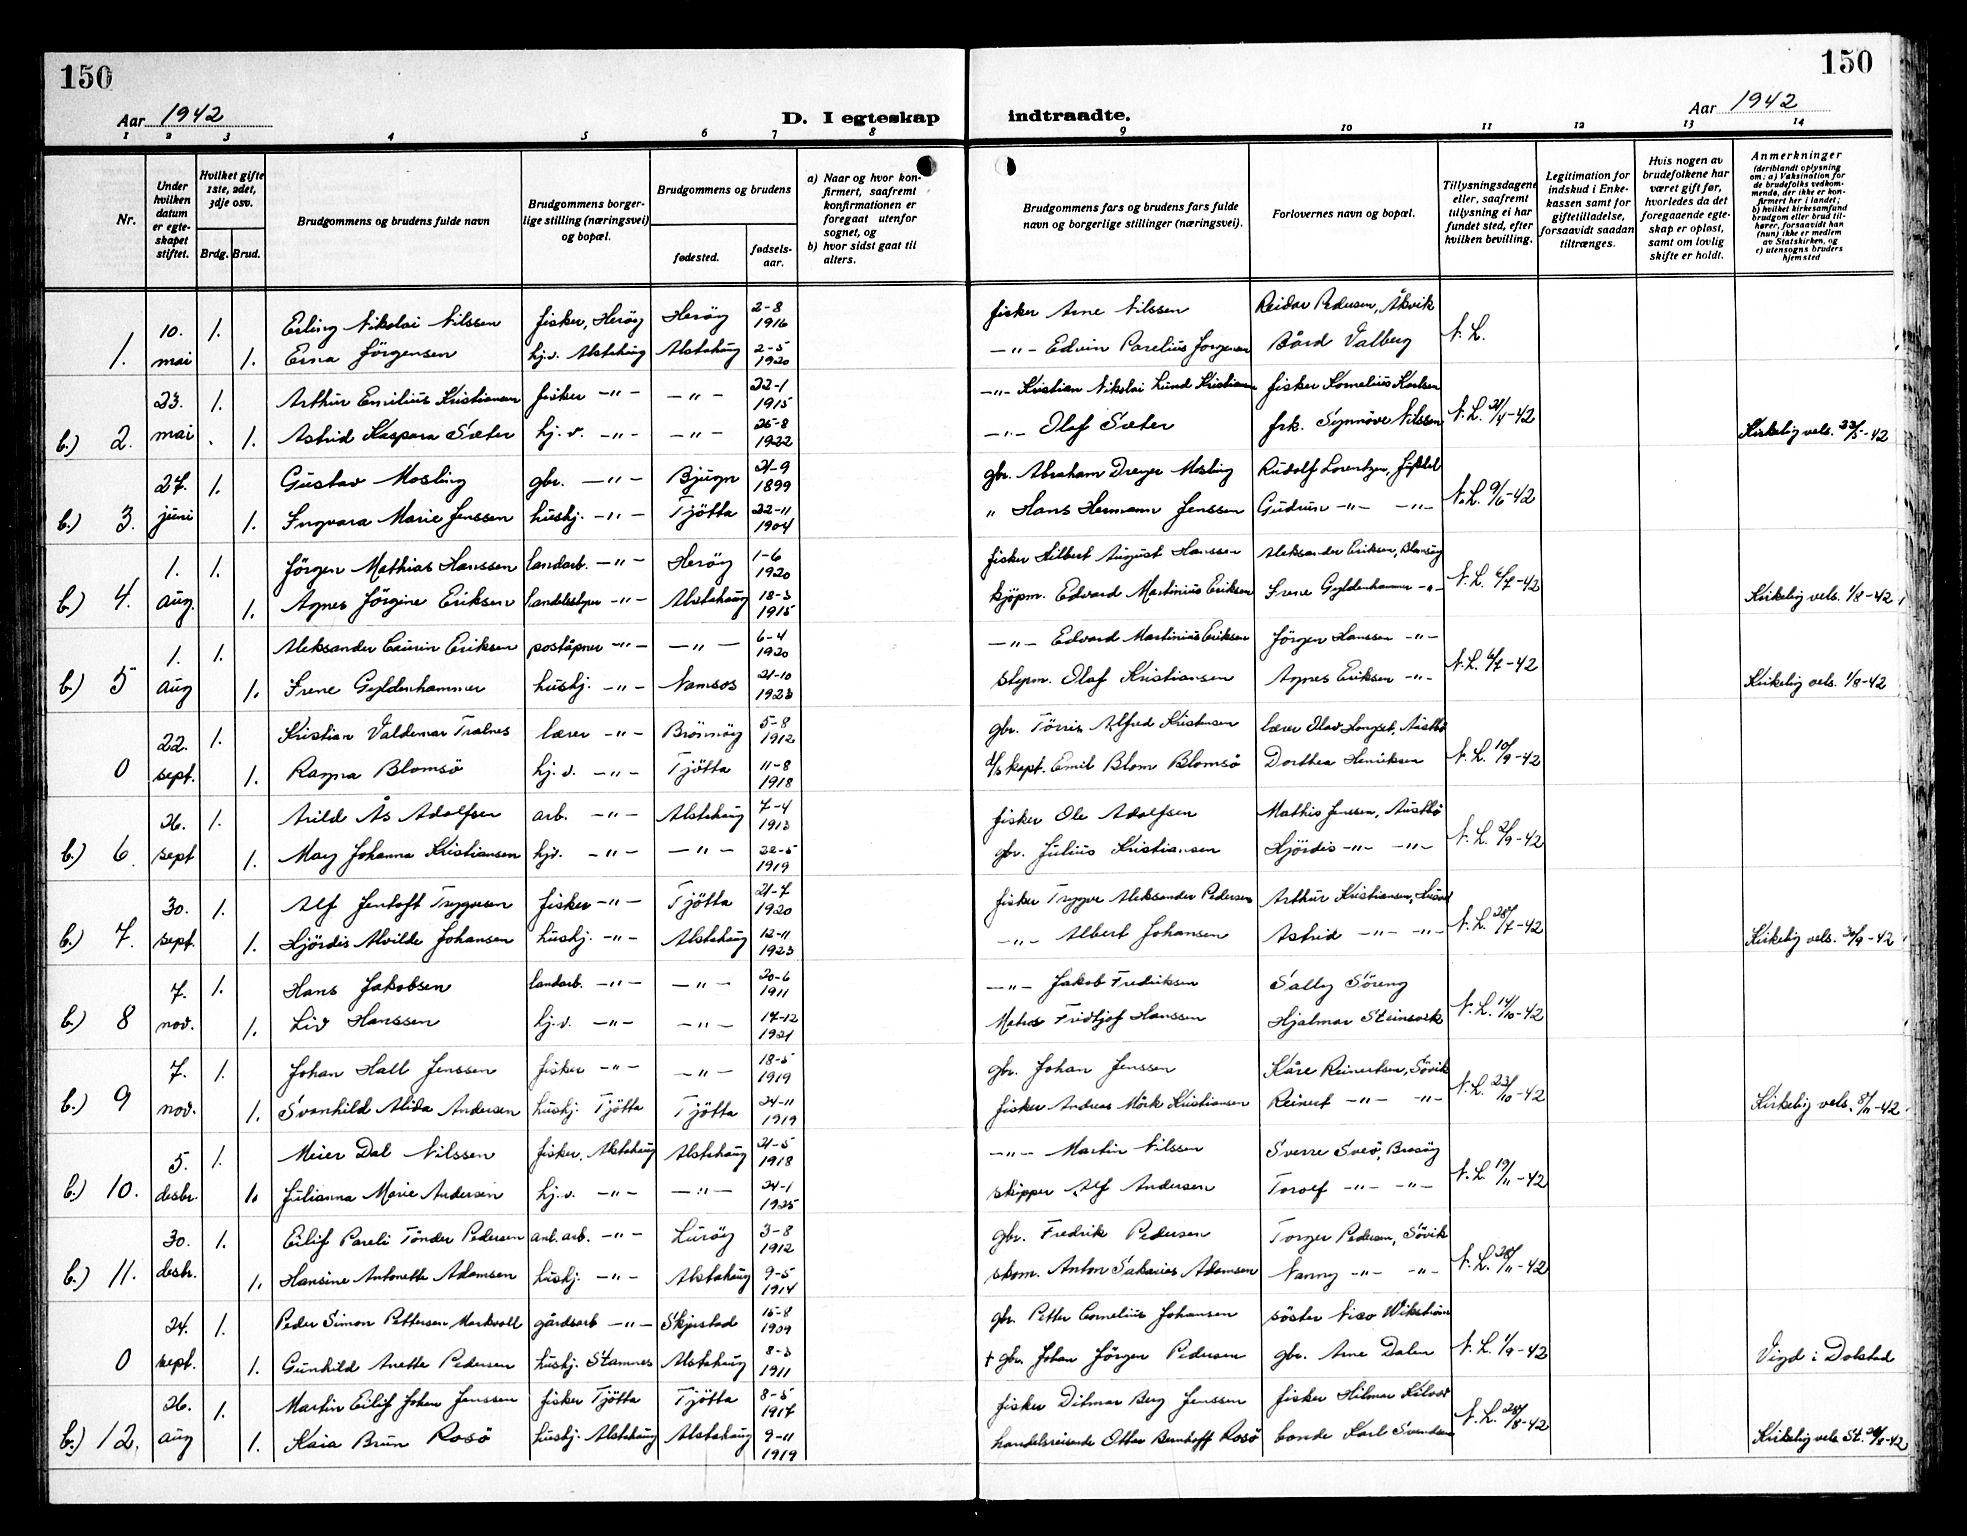 150
150
Aar 1942
D. I egteskap indtraadte.
Aar 1942
1 2 3 4 5 6 7 8 9 10 11 12 13 14
Nr.
Under hvilken datum er egteskapet stiftet.
Hvilket gifte 1ste, 2det, 3dje osv.
Brdg. Brud.
Brudgommens og brudens fulde navn
Brudgommens borgerlige stilling (næringsvei) og bopæl.
Brudgommens og brudens
fødested.
fødselsaar.
a) Naar og hvor konfirmert, saafremt konfirmationen er foregaat utenfor sognet, og
b) hvor sidst gaat til alters.
Brudgommens fars og brudens fars fulde navn og borgerlige stillinger (næringsvei).
Forlovernes navn og bopæl.
Tillysningsdagene eller, saafremt tillysning ei har fundet sted, efter hvilken bevilling.
Legitimation for indskud i Enkekassen samt for giftetilladelse, forsaavidt saadan tiltrænges.
Hvis nogen av brudefolkene har været gift før, hvorledes da det foregaaende egteskap er opløst, samt om lovlig skifte er holdt.
Anmerkninger (deriblandt oplysning om: a) Vaksination for de brudefolks vedkommende, der ikke er konfirmert her i landet; b) hvilket kirkesamfund brudgom eller brud tilhører, forsaavidt han (hun) ikke er medlem av Statskirken, og c) utensogns bruders hjemsted
10. 1. Erling Nikolai Nilssen fisker, Herøy Herøy 2-8 1916 fisker Arne Nilssen Reidar Pedersen, Åkvik N. L.
1. mai 1. Erna Jörgensen hj.v. Alstahaug Alstahaug 2-5 1920 -"- Edvin Parelius Jorgensen Bård Valberg
23. 1. Arthur Emilius Kristiansen fisker -"- -"- 22-1 1915 -"- Kristian Nikolai Lund Kristiansen fisker Kornelius Karlsen N. L. 21/4-42
b.) 2. mai 1. Astrid Kaspara Sæter hj.v. -"- -"- 26-8 1922 -"- Olaf Sæter frk. Synnöve Nilssen Kirkelig vels. 23/5-42
27. 1. Gustav Mosling gbr. -"- Bjugn 21-9 1899 gbr. Abraham Dreyer Mosling Rudolf Lorentzen, N. L. 9/6-42
b.) 3. juni 1. Ingvara Marie Jenssen hushj. -"- Tjötta 22-11 1904 " Hans Hermann Jenssen Gudrun -"- -"-
1. 1. Jörgen Mathias Hanssen landarb. -"- Herøy 1-6 1920 fisker Hilbert August Hanssen Aleksander Eriksen, N. L. 6/7-42
b.) 4. aug. 1. Agnes Jörgine Eriksen -"- Alstahaug 18-3 1915 kjöpm. Edvard Martinius Eriksen Irene Gyldenhammer -"- Kirkelig vels. 1/8-42
1. 1. Aleksander Laurin Eriksen poståpner -"- -"- 6-4 1920 -"- Edvard Martinius Eriksen Jörgen Hanssen -"- N. L. 6/7-42
b.) 5 aug 1. Irene Gyldenhammer hushj. -"- Namsos 21-10 1923 styrm. Olaf Kristiansen Agnes Eriksen -"- Kirkelig vels. 1/8-42
22. 1. Kristian Valdemar Tralnes lærer -"- Brönnöy 5-8 1912 gbr. Törris Alfred Kristensen lærer Olav Longset, Austbö N. L. 10/9-42
0 sept. 1. Ragna Blomsö hj.v. -"- Tjötta 11-8 1918 d/s kapt. Emil Blom Blomsö Dorthea Henriksen
26. 1. Arild Ås Adolfsen arb. -"- Alstahaug 7-4 1913 fisker Ole Adolfsen Mathis Jenssen, Austbö N. L. 2/9-42
b.) 6. sept 1. May Johanna Kristiansen hjv. -"- -"- 22-5 1919 gbr. Julius Kristiansen Hjördis -"- -"-
30. 1. Alf Jentoft Trygvesen fisker -"- Tjötta 21-7 1920 fisker Trygve Aleksander Pedersen Arthur Kristiansen, N. L. 28/7-42
b.) 7. sept. 1. Hjördis Alvilde Johansen hushj. -"- Alstahaug 12-11 1923 -"- Albert Johansen Astrid -"- -"- Kirkelig vels. 30/9-42
7. 1. Hans Jakobsen landarb. -"- -"- 20-6 1911 -"- Jakob Fredriksen Sally Söreng N. L. 14/10-42
b.) 8 nov. 1. Liv Hanssen hj.v. -"- -"- 14-12 1921 Fridtjof Hanssen Hjalmar
7. 1. Johan Hall Jenssen fisker -"- -"- 18-5 1919 gbr. Johan Jenssen Kåre Reinertsen, Sövik N. L. 23/10-42
b.) 9 nov. 1. Svanhild Alida Andersen hushj. Tjötta Tjötta 24-11 1919 fisker Andreas Mörk Kristiansen Reinert -"- -"- Kirkelig vels. 8/11-42
5. 1. Meier Dal Nilssen fisker, Alstahaug Alstahaug 21-5 1918 -"- Martin Nilssen Sverre Sveö, Brasöy N. L. 19/11-42
b.) 10. desbr. 1. Julianna Marie Andersen hj.v. -"- -"- 24-1 1925 skipper Alf Andersen Torolf -"- -"-
30. 1. Eilif Pareli Tönder Pedersen anl. arb. -"- Luröy 3-8 1912 gbr. Fredrik Pedersen Torger Pedersen, Sövik N. L. 28/11-42
b.) 11. desbr. 1. Hansine Antonette Adamsen hushj. -"- Alstahaug 9-5 1914 skom. Anton Sakarias Adamsen Nanny -"- -"-
24. 1. Peder Simon Pettersen Markvoll gårdsarb -"- Skjerstad 15-8 1909 gbr. Petter Cornelius Johansen söster Wikström N. L. 1/9-42
0 sept. 1. Gunhild Anette Pedersen hushj. Stamnes Alstahaug 8-3 1911 † gbr. Johan Jörgen Pedersen gbr. Arne Dalen Vigd i Dolstad
26. 1. Martin Eilif Johan Jenssen fisker Tjötta Tjötta 8-5 1917 fisker Ditmar Berg Jenssen fisker Hilmar N. L. 28/8-42
b.) 12. aug 1. Kaia Brun Rosö hushj. Alstahaug Alstahaug 9-11 1919 handelsreisende Ottar Bernhoff Rosö bonde Karl Svendsen Kirkelig vels. St. 26/8-42